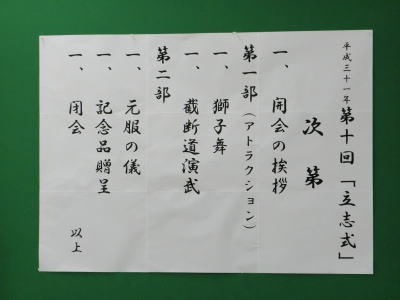 平成三十一年 第十回「立志式」
次第
一、開会の挨拶
第一部（アトラクション）
一、獅子舞
一、截断道演武
第二部
一、元服の儀
一、記念品贈呈
一、閉会
以上